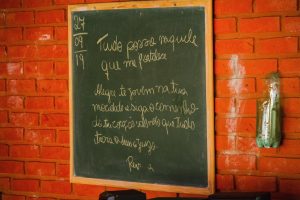 27
09
19
Tudo posso naquele
que me fortalece
Alegre-te jovem na tua
mocidade e siga o caminho
do teu coração sabendo que tudo